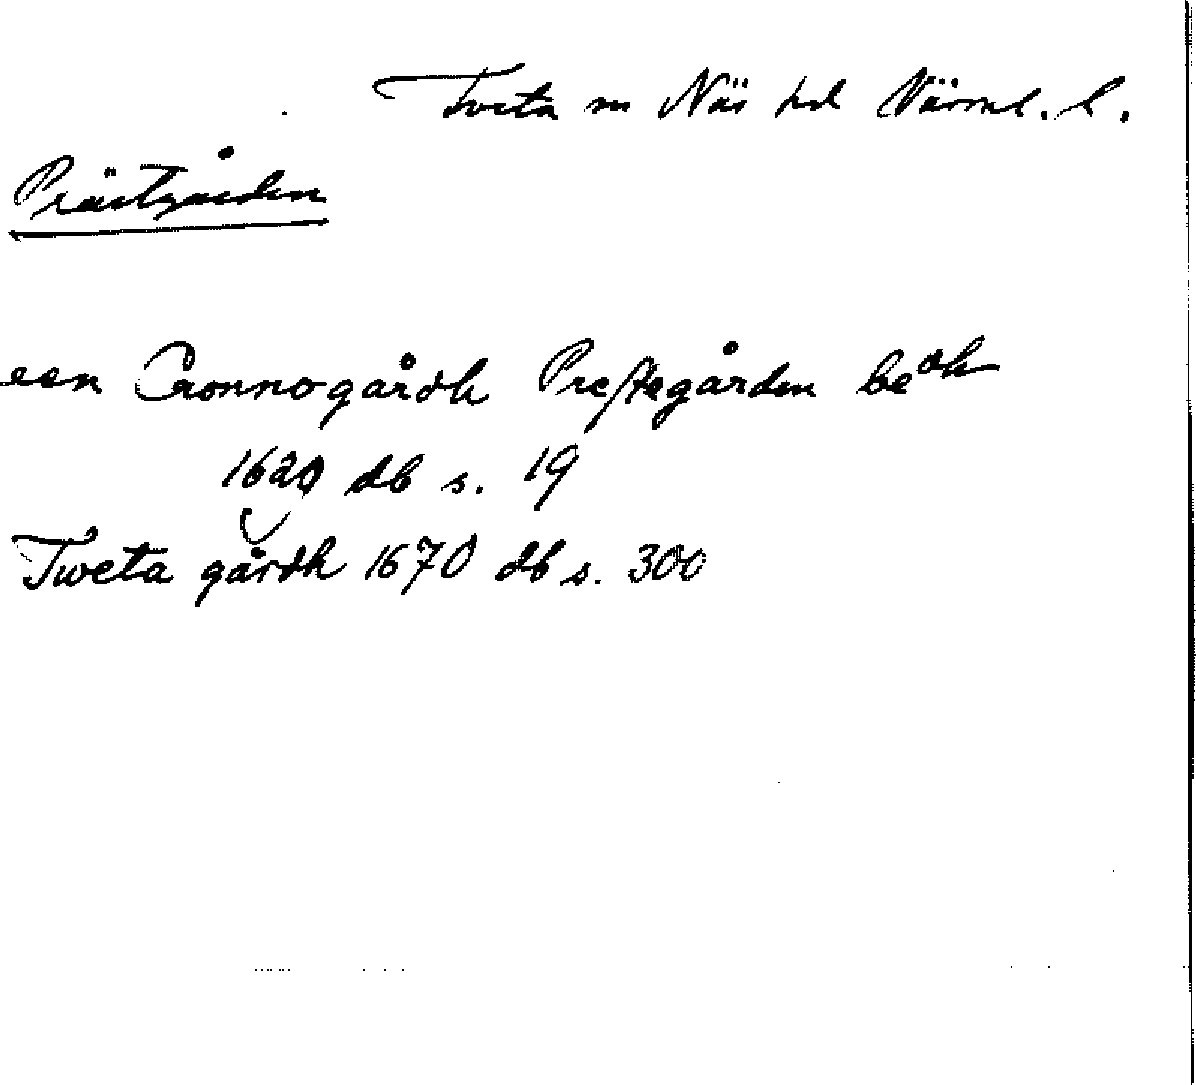 Tveta sn Näs hd Värml. l.
Prästgården
een Cronnogårdh Prestegården be
1620 db s. 19
Tweta gårdh 1670 db s. 300